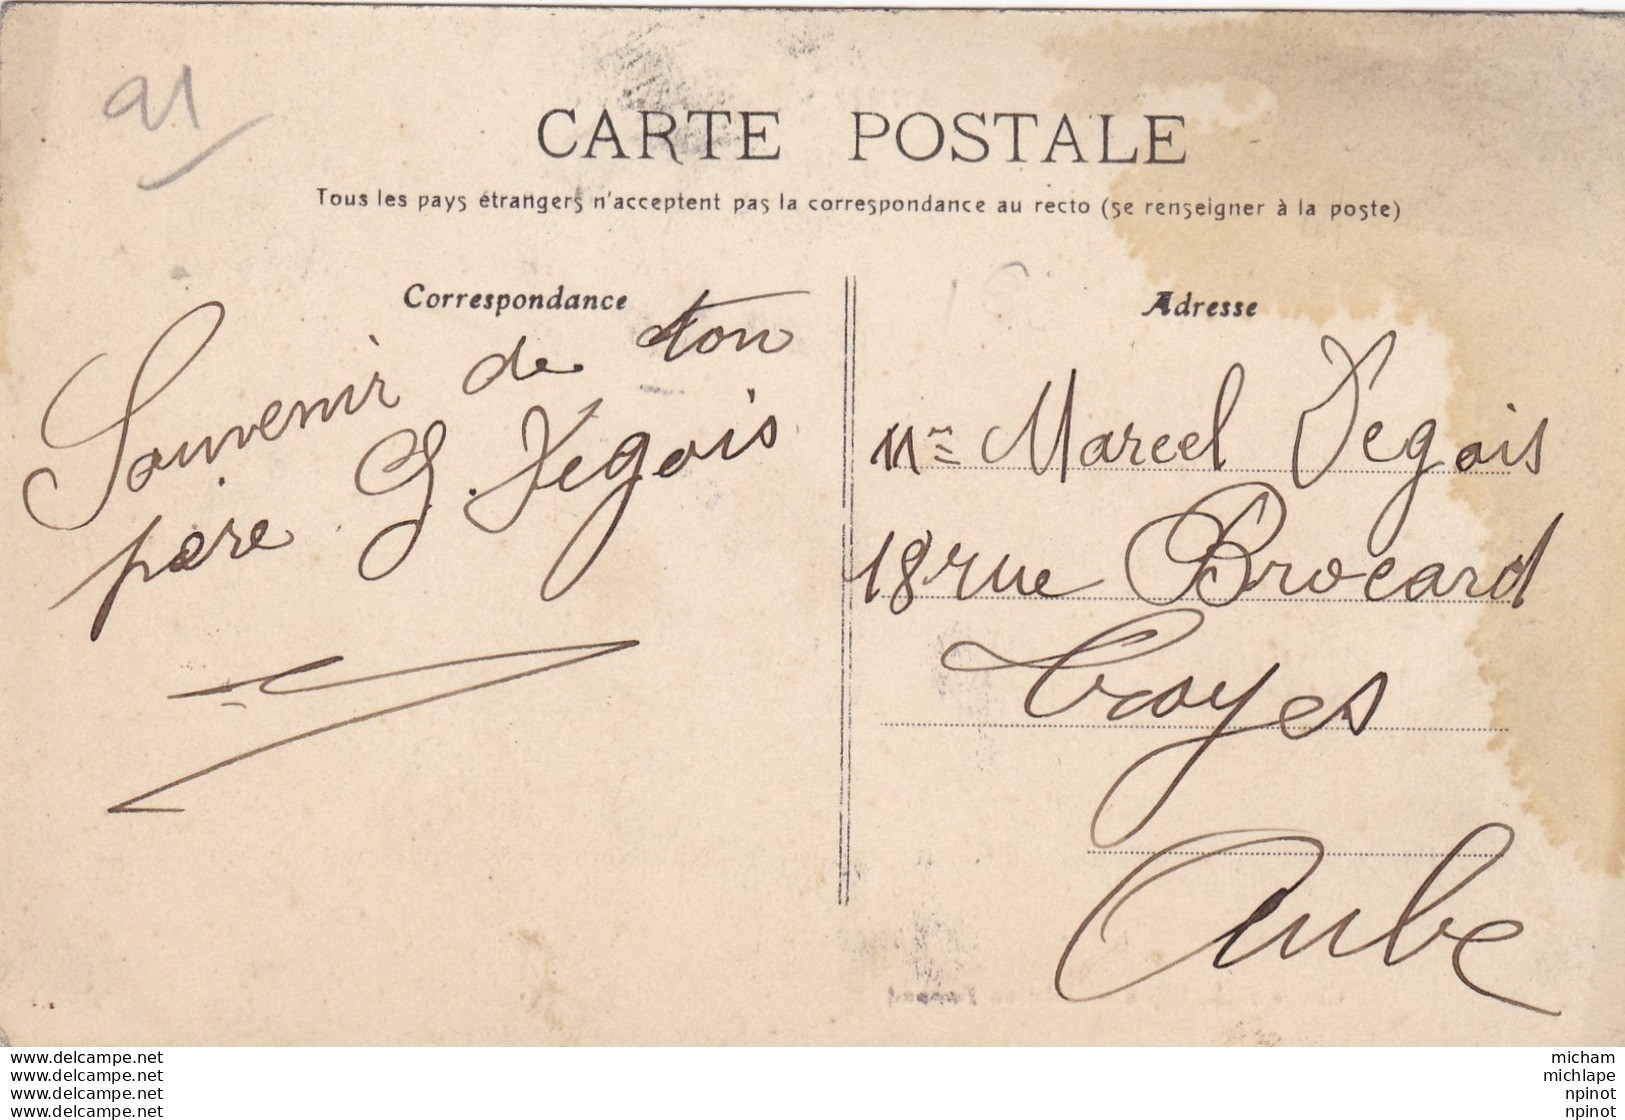 91
CARTE POSTALE
Tous les pays étrangers n'acceptent pas la correspondance au recto (se renseigner à la poste)
Correspondance
Souvenir de ton
père G. Végois
Adresse
Marcel Végois
18 rue Brocard
Troyes
Aube
www.delcampe.net
www.delcampe.net
www.delcampe.net
www.delcampe.net
micham
michlape
npinot
npinot